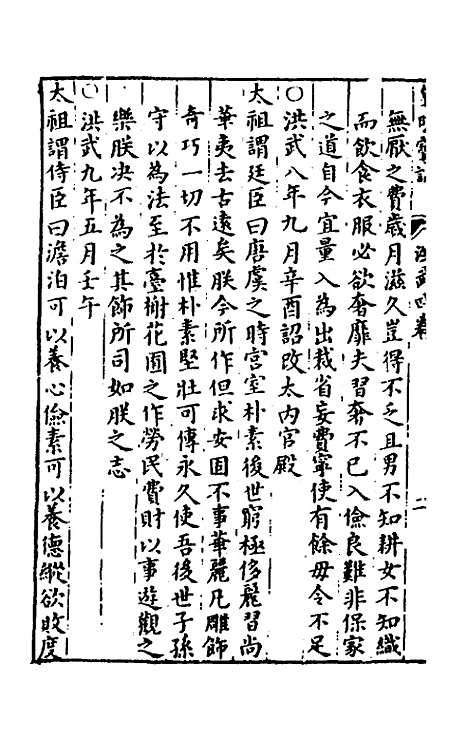 皇明寶訓　洪武四卷　二
無厭之費歲月滋久豈得不乏且男不知耕女不知織
而飲食衣服必欲奢靡夫習奢不已入儉良難非保家
之道自今宜量入為出裁省妄費寧使有餘毋令不足
○洪武八年九月辛酉詔改太內宫殿
太祖謂廷臣曰唐虞之時宫室朴素後世窮極侈麗習尚
華夷去古遠矣朕今所作但求安固不事華麗凡雕飾
奇巧一切不用惟朴素堅壯可傳永久使吾後世子孫
守以為法至於臺榭花囿之作勞民費財以事遊觀之
樂朕决不為之其飾所司如朕之志
○洪武九年五月壬午
太祖謂侍臣曰澹泊可以養心儉素可以養德縱欲敗度